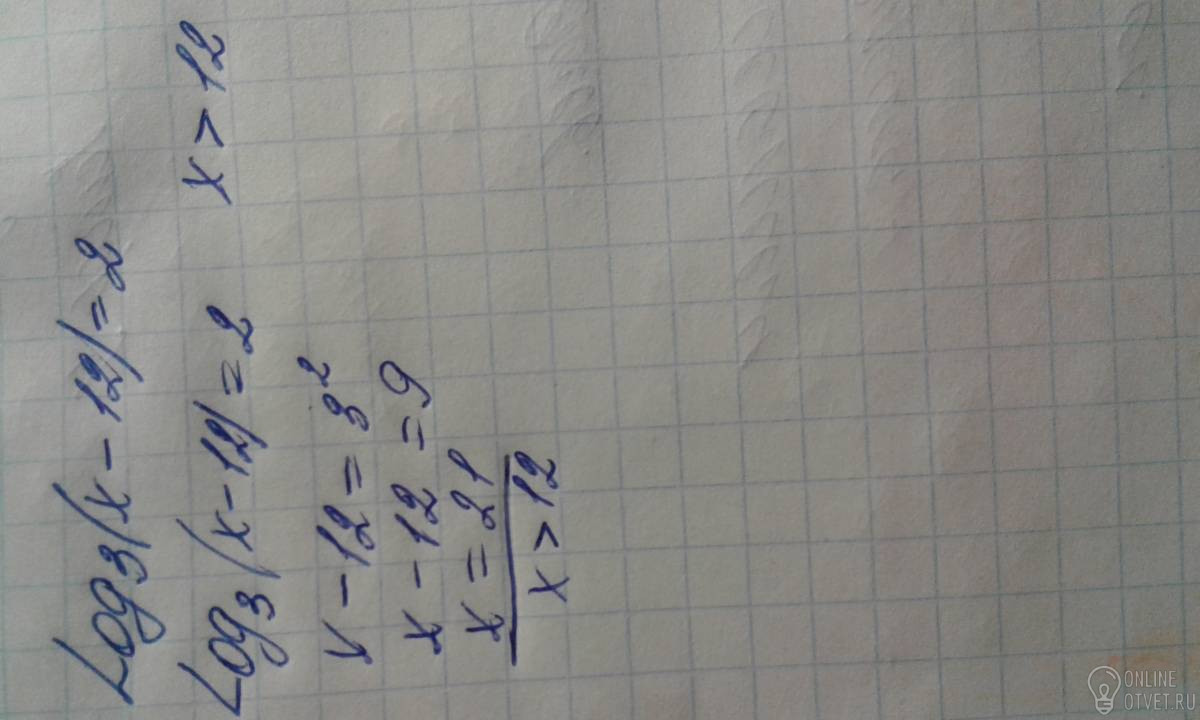 Log₃(x-12)=2
Log₃(x-12)=2 x>12
x-12=3²
x-12=9
x=21
x>12
ONLINE
OTVET.RU